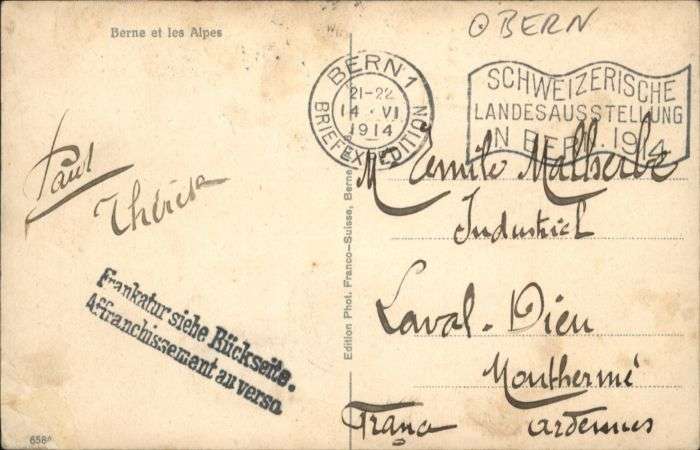 Berne et les Alpes
O BERN
BERN 1
21-22
14 · VI
1914
BRIEFEXPEDITION
SCHWEIZERISCHE
LANDESAUSSTELLUNG
IN BERN. 1914
Paul
Thérèse
Frankatur siehe Rückseite.
Affranchissement au verso
Edition Phot. Franco-Suisse, Berne
M Emile Malherbe
Industriel
Laval-Dieu
Monthermé
France Ardennes
658